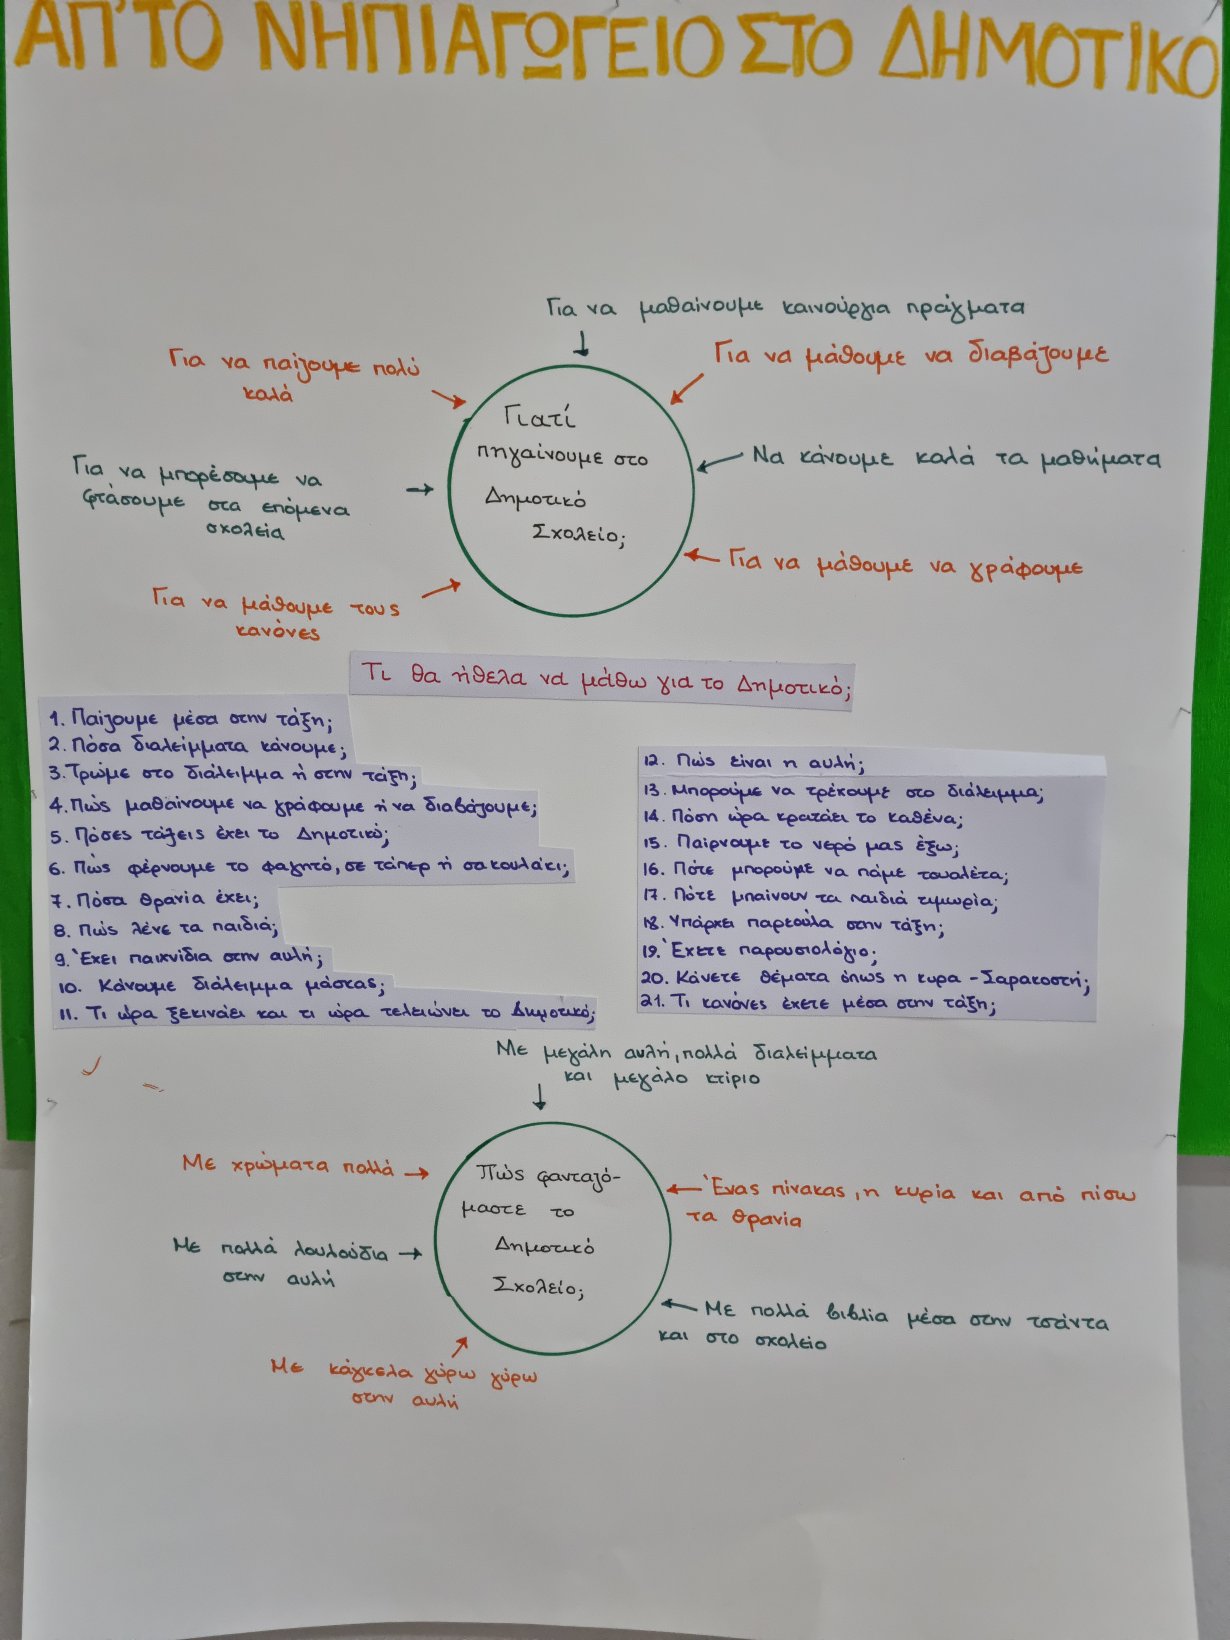 ΑΠ'ΤΟ ΝΗΠΙΑΓΩΓΕΙΟ ΣΤΟ ΔΗΜΟΤΙΚΟ
Για να μαθαίνουμε καινούργια πράγματα
Για να παίζουμε πολύ
καλά
Για να μάθουμε να διαβάζουμε
Για να μπορέσουμε να
φτάσουμε στα επόμενα
σχολεία
Γιατί
πηγαίνουμε στο
Δημοτικό
Σχολείο;
Να κάνουμε καλά τα μαθήματα
Για να μάθουμε να γράφουμε
Για να μάθουμε τους
κανόνες
Τι θα ήθελα να μάθω για το Δημοτικό;
1. Παίζουμε μέσα στην τάξη;
2. Πόσα διαλείμματα κάνουμε;
3. Τρώμε στο διάλειμμα ή στην τάξη;
4. Πώς μαθαίνουμε να γράφουμε ή να διαβάζουμε;
5. Πόσες τάξεις έχει το Δημοτικό;
6. Πώς φέρνουμε το φαγητό, σε τάπερ ή σακουλάκι;
7. Πόσα θρανία έχει;
8. Πώς λένε τα παιδιά;
9. Έχει παιχνίδια στην αυλή;
10. Κάνουμε διάλειμμα μάσκας;
11. Τι ώρα ξεκινάει και τι ώρα τελειώνει το Δημοτικό;
12. Πώς είναι η αυλή;
13. Μπορούμε να τρέχουμε στο διάλειμμα;
14. Πόση ώρα κρατάει το καθένα;
15. Παίρνουμε το νερό μας έξω;
16. Πότε μπορούμε να πάμε τουαλέτα;
17. Πότε μπαίνουν τα παιδιά τιμωρία;
18. Υπάρχει παρεούλα στην τάξη;
19. Έχετε παρουσιολόγιο;
20. Κάνετε θέματα όπως η κυρα-Σαρακοστή;
21. Τι κανόνες έχετε μέσα στην τάξη;
Με μεγάλη αυλή, πολλά διαλείμματα
και μεγάλο κτίριο
Με χρώματα πολλά
Με πολλά λουλούδια
στην αυλή
Πώς φανταζό-
μαστε το
Δημοτικό
Σχολείο;
Ένας πίνακας, η κυρία και από πίσω
τα θρανία
Με πολλά βιβλία μέσα στην τσάντα
και στο σχολείο
Με κάγκελα γύρω γύρω
στην αυλή